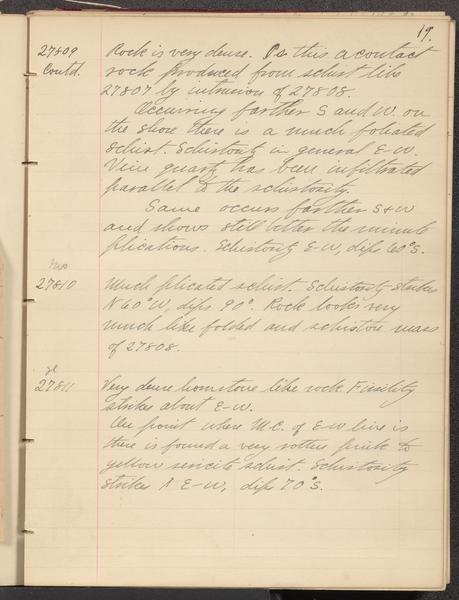 19.
27809 Rock is very dense. Is this a contact
Contd. rock produced from schist like
27807 by intrusion of 27808.
Occurring farther S and W. on
the shore there is a much foliated
schist. Schistosity in general E-W.
Vein quartz has been infiltrated
parallel to the schistosity.
Same occurs farther S + W
and shows still better the minute
plications. Schistosity E-W, dips 60° S.
27810 Much plicated schist. Schistosity strikes
N 60° W, dips 90°. Rock looks very
much like folded and schistose mass
of 27808.
27811 Very dense hornstone like rock. Fissility
strikes about E-W.
On point where M.C. of E-W line is
there is found a very rotten pink to
yellow sericite schist. Schistosity
strikes E-W, dips 70° S.